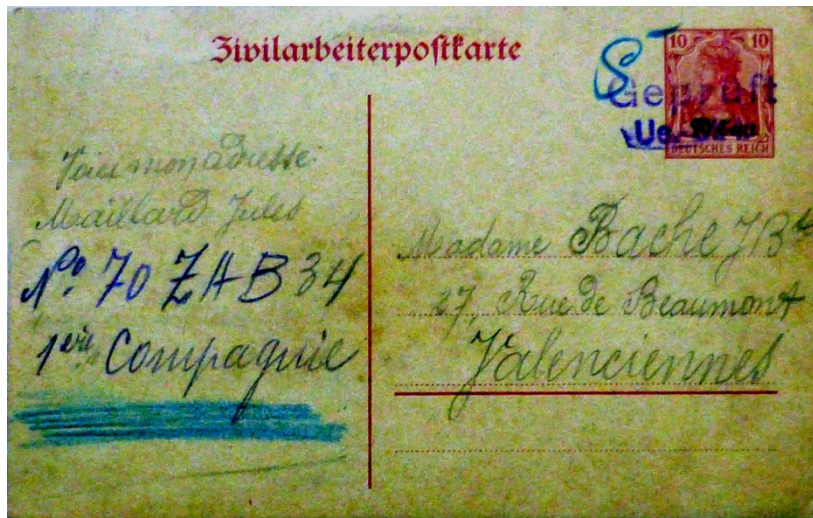 Zivilarbeiterpostkarte
10 10
Geprüft
DEUTSCHES REICH
Voici mon adresse
Maillard Jules
N° 70 ZAB 34
1ère Compagnie
Madame Bache JBte
27, Rue de Beaumont
Valenciennes